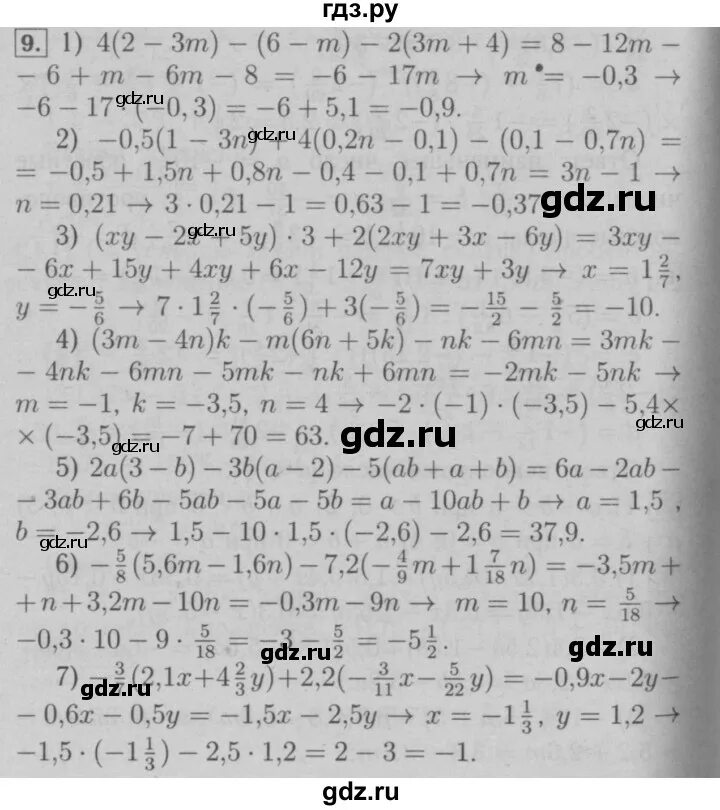 гдз.ру
9. 1) 4(2 − 3m) − (6 − m) − 2(3m + 4) = 8 − 12m −
− 6 + m − 6m − 8 = −6 − 17m → m = −0,3 →
−6 − 17 · (−0, 3) = −6 + 5,1 = −0,9.
2) −0,5(1 − 3n) + 4(0,2n − 0,1) − (0,1 − 0,7n) =
= −0,5 + 1,5n + 0,8n − 0,4 − 0,1 + 0,7n = 3n − 1 →
n = 0,21 → 3 · 0,21 − 1 = 0,63 − 1 = −0,37
3) (xy − 2x + 5y) · 3 + 2(2xy + 3x − 6y) = 3xy −
− 6x + 15y + 4xy + 6x − 12y = 7xy + 3y → x = 1 2/7,
y = −5/6 → 7 · 1 2/7 · (−5/6) + 3(−5/6) = −15/2 − 5/2 = −10.
4) (3m − 4n)k − m(6n + 5k) − nk − 6mn = 3mk −
− 4nk − 6mn − 5mk − nk + 6mn = −2mk − 5nk →
m = −1, k = −3,5, n = 4 → −2 · (−1) · (−3,5) − 5,4×
× (−3,5) = −7 + 70 = 63.
5) 2a(3 − b) − 3b(a − 2) − 5(ab + a + b) = 6a − 2ab −
− 3ab + 6b − 5ab − 5a − 5b = a − 10ab + b → a = 1,5 ,
b = −2,6 → 1,5 − 10 · 1,5 · (−2,6) − 2,6 = 37,9.
6) −5/8(5,6m − 1,6n) − 7,2(−4/9m + 1 7/18n) = −3,5m +
+ n + 3,2m − 10n = −0,3m − 9n → m = 10, n = 5/18 →
−0,3 · 10 − 9 · 5/18 = −3 − 5/2 = −5 1/2.
7) −3/(2,1x + 4 2/3y) + 2,2(−3/11x − 5/22y) = −0,9x − 2y −
− 0,6x − 0,5y = −1,5x − 2,5y → x = −1 1/3, y = 1,2 →
−1,5 · (−1 1/3) − 2,5 · 1,2 = 2 − 3 = −1.
gdz.ru
gdz.ru
gdz.ru
gdz.ru
gdz.ru
gdz.ru
gdz.ru
gdz.ru
gdz.ru
gdz.ru
gdz.ru
gdz.ru
gdz.ru